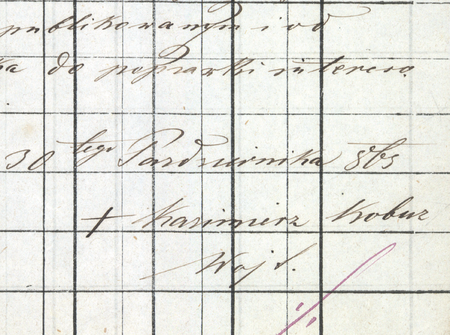 publikowanym i od
ka do poprawki interesso
30 tego Pazdziernika 865
+ Kazimierz Kobuz
Wojt.